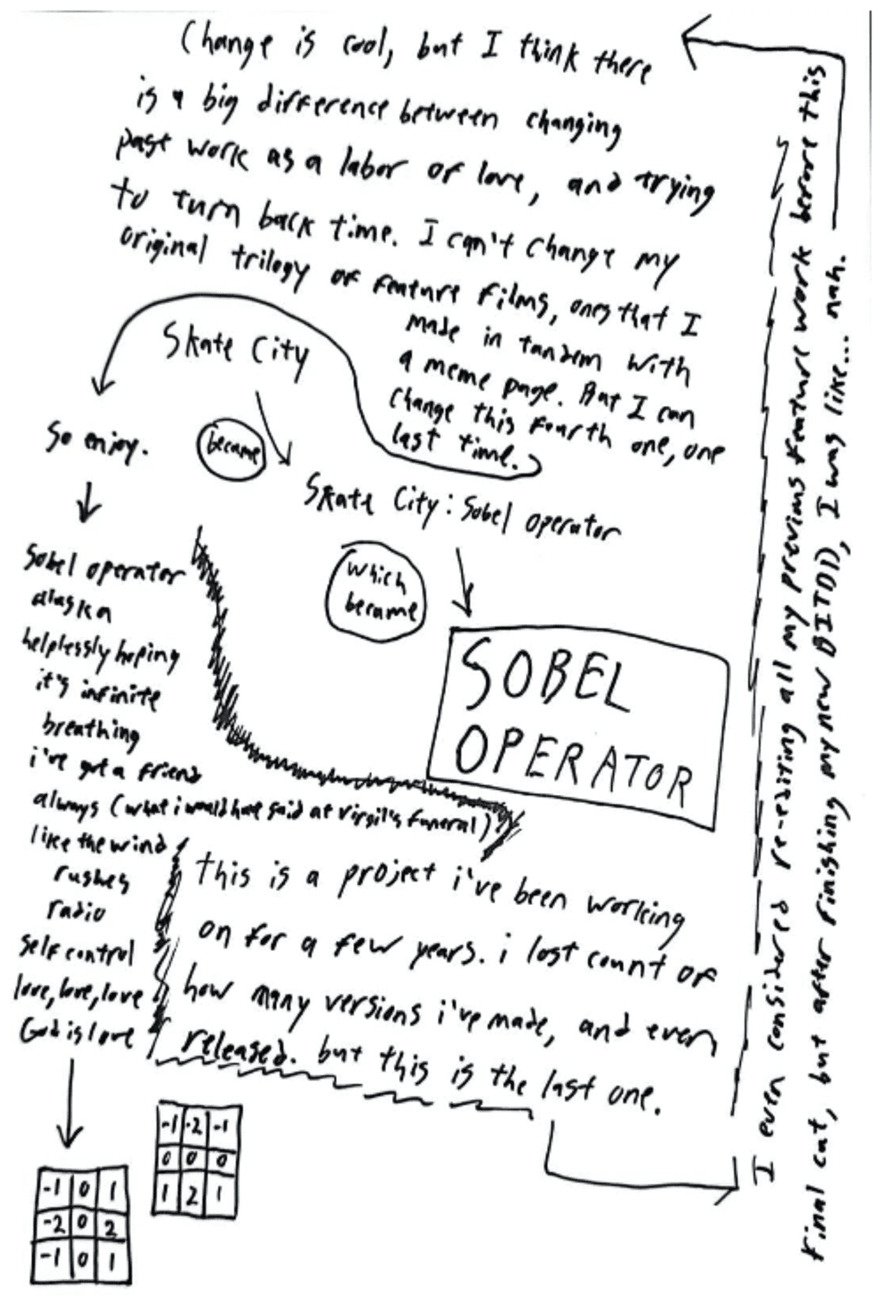 Skate City
became
Skate City: Sobel operator
which
became
SOBEL
OPERATOR
this is a project i've been working
on for a few years. i lost count of
how many versions i've made, and even
released. but this is the last one.
I even considered re-editing all my previous feature work before this
final cut, but after finishing my new BITDD, I was like... nah.
Change is cool, but I think there
is a big difference between changing
past work as a labor of love, and trying
to turn back time. I can't change my
original trilogy of feature films, ones that I
made in tandem with
a meme page. But I can
change this fourth one, one
last time.
So enjoy.
Sobel operator
alaska
helplessly hoping
it's infinite
breathing
i've got a friend
always (what i would have said at Virgil's funeral)
like the wind
rushes
radio
self control
love, love, love
God is love
-1 0 1
-2 0 2
-1 0 1
-1 -2 -1
0 0 0
1 2 1